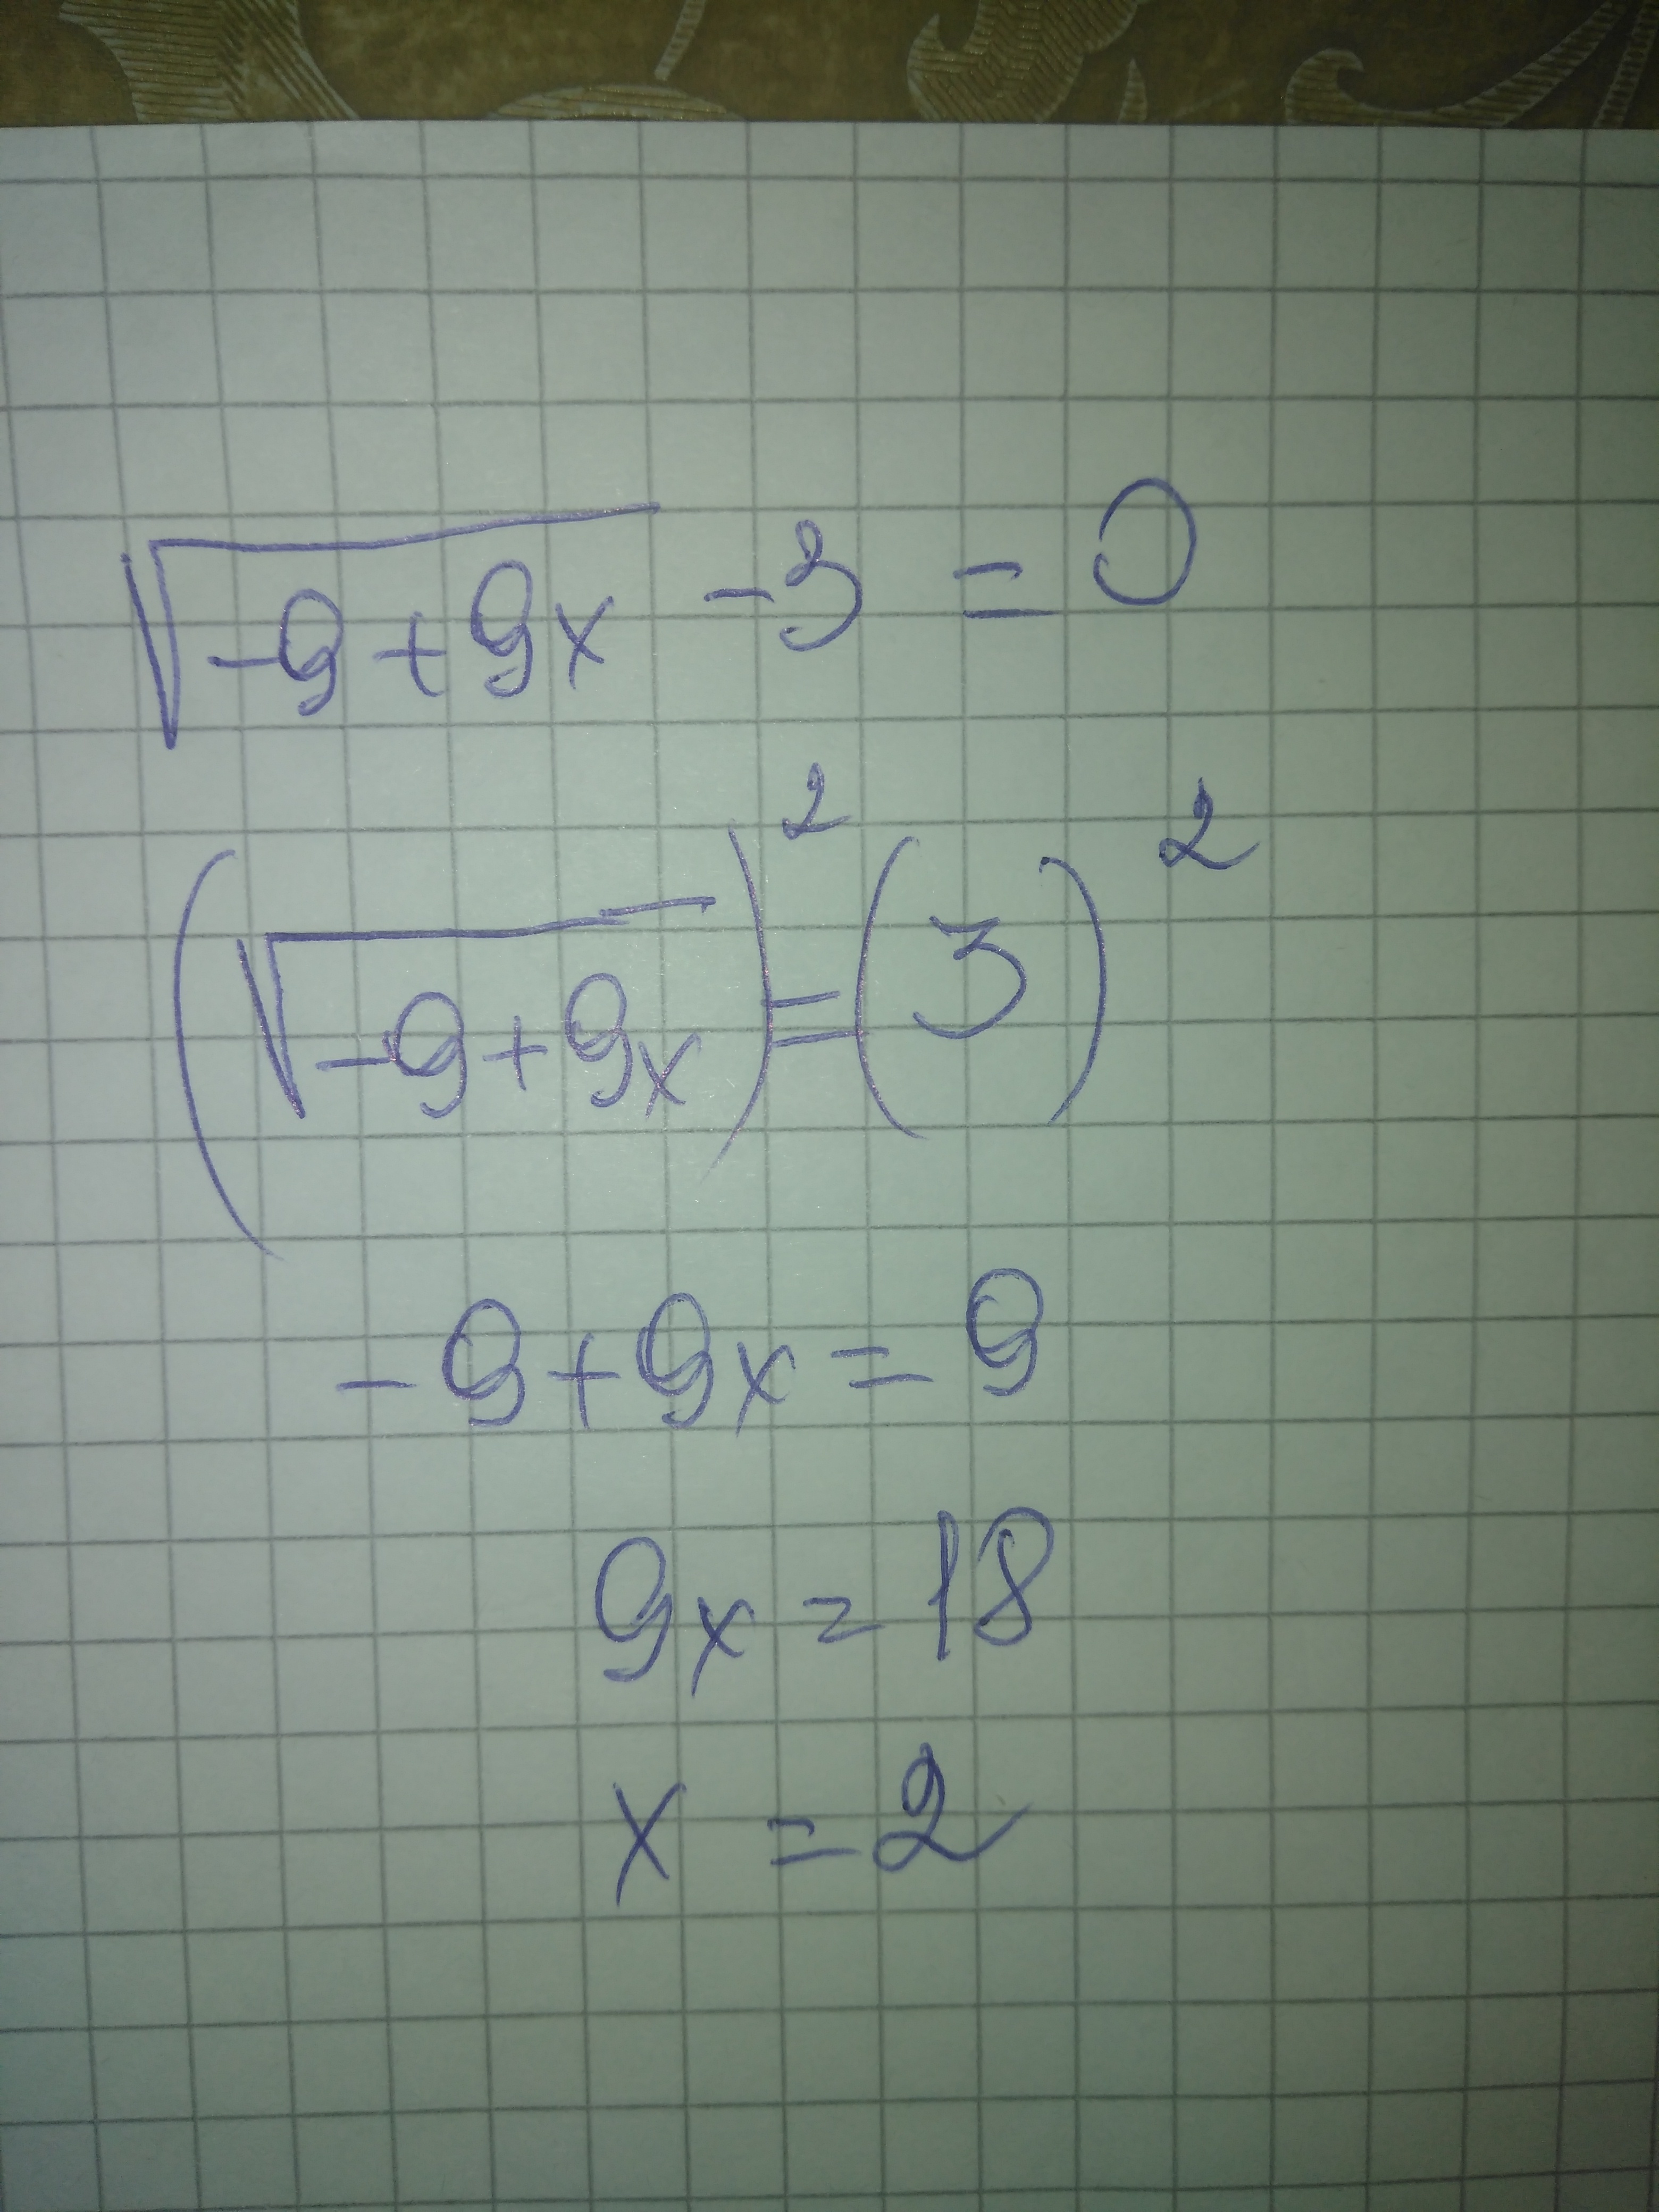 √-9+9x -3 = 0
(√-9+9x)² = (3)²
-9+9x = 9
9x = 18
x = 2